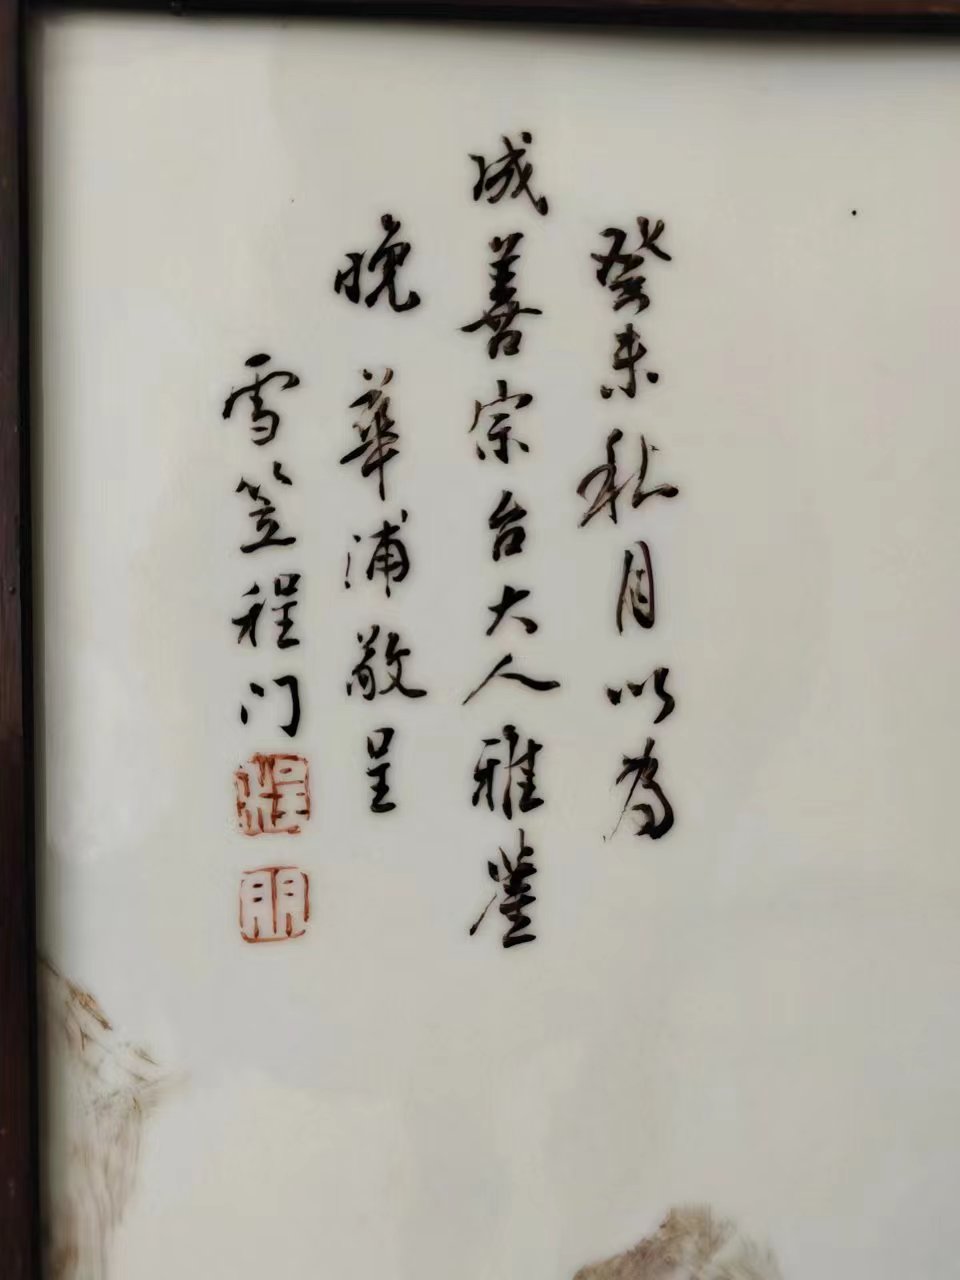 癸未秋月以為
成善宗台大人雅鑒
晚 華浦敬呈
雪笠程门
程
門